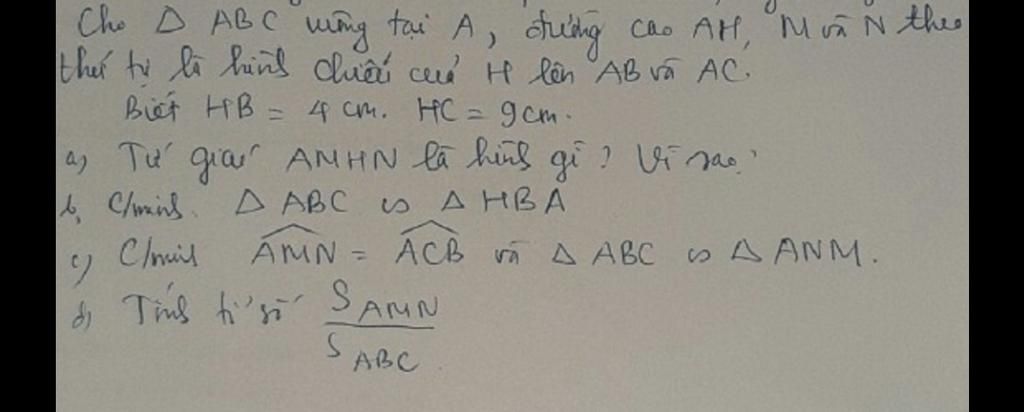 Cho Δ ABC vuông tại A, đường cao AH, M và N theo
thứ tự là hình chiếu của H lên AB và AC.
Biết HB = 4 cm. HC = 9 cm.
a, Tứ giác AMHN là hình gì? Vì sao?
b, C/minh. Δ ABC ∽ Δ HBA
c, C/minh \widehat{AMN} = \widehat{ACB} và Δ ABC ∽ Δ ANM.
d, Tính tỉ số \frac{S_{AMN}}{S_{ABC}}